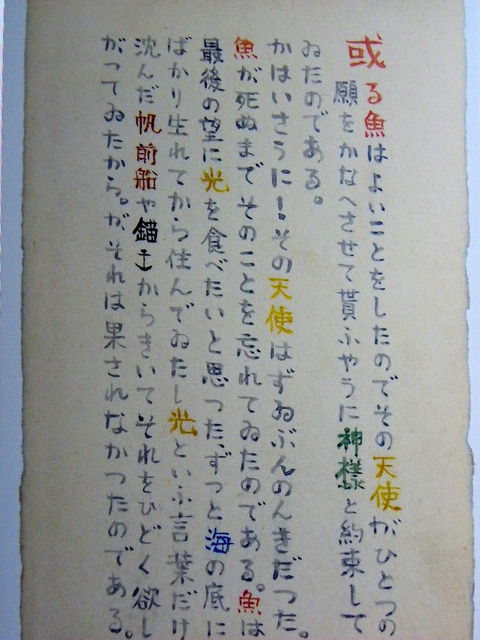 或る魚はよいことをしたのでその天使がひとつの
願をかなへさせて貰ふやうに神様と約束して
ゐたのである。
かはいさうに！その天使はずゐぶんのんきだつた。
魚が死ぬまでそのことを忘れてゐたのである。魚は
最後の望に光を食べたいと思つた、ずつと海の底に
ばかり生れてから住んでゐたし光といふ言葉だけ
沈んだ帆前船や錨からきいてそれをひどく欲し
がつてゐたから。が、それは果されなかつたのである。